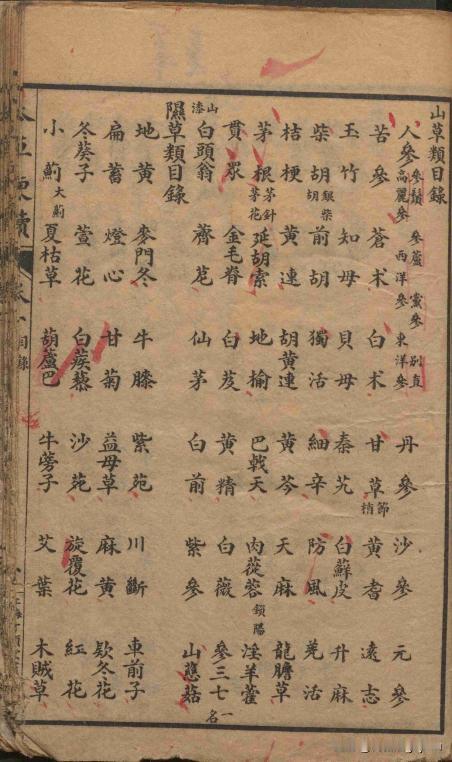 山草類目錄
人參 參鬚 高麗參 參蘆 西洋參 黨參 東洋參 別直 丹參 沙參 元參
苦參 蒼朮 白朮 甘草 節梢 黃耆 遠志
玉竹 知母 貝母 秦艽 白蘚皮 升麻
柴胡 銀柴胡 前胡 獨活 細辛 防風 羌活
桔梗 黃連 胡黃連 黃芩 天麻 龍膽草
茅根 茅針 茅花 延胡索 地榆 巴戟天 肉蓯蓉 鎖陽 淫羊藿
貫眾 金毛脊 白芨 黃精 白薇 參三七 一名
山漆 白頭翁 薺苨 仙茅 白前 紫參 山慈菇
隰草類目錄
地黃 麥門冬 牛膝 紫苑 川斷 車前子
扁蓄 燈心 甘菊 益母草 麻黃 欵冬花
冬葵子 萱花 白蒺藜 沙苑 旋覆花 紅花
小薊 大薊 夏枯草 葫蘆巴 牛蒡子 艾葉 木賊草
目錄